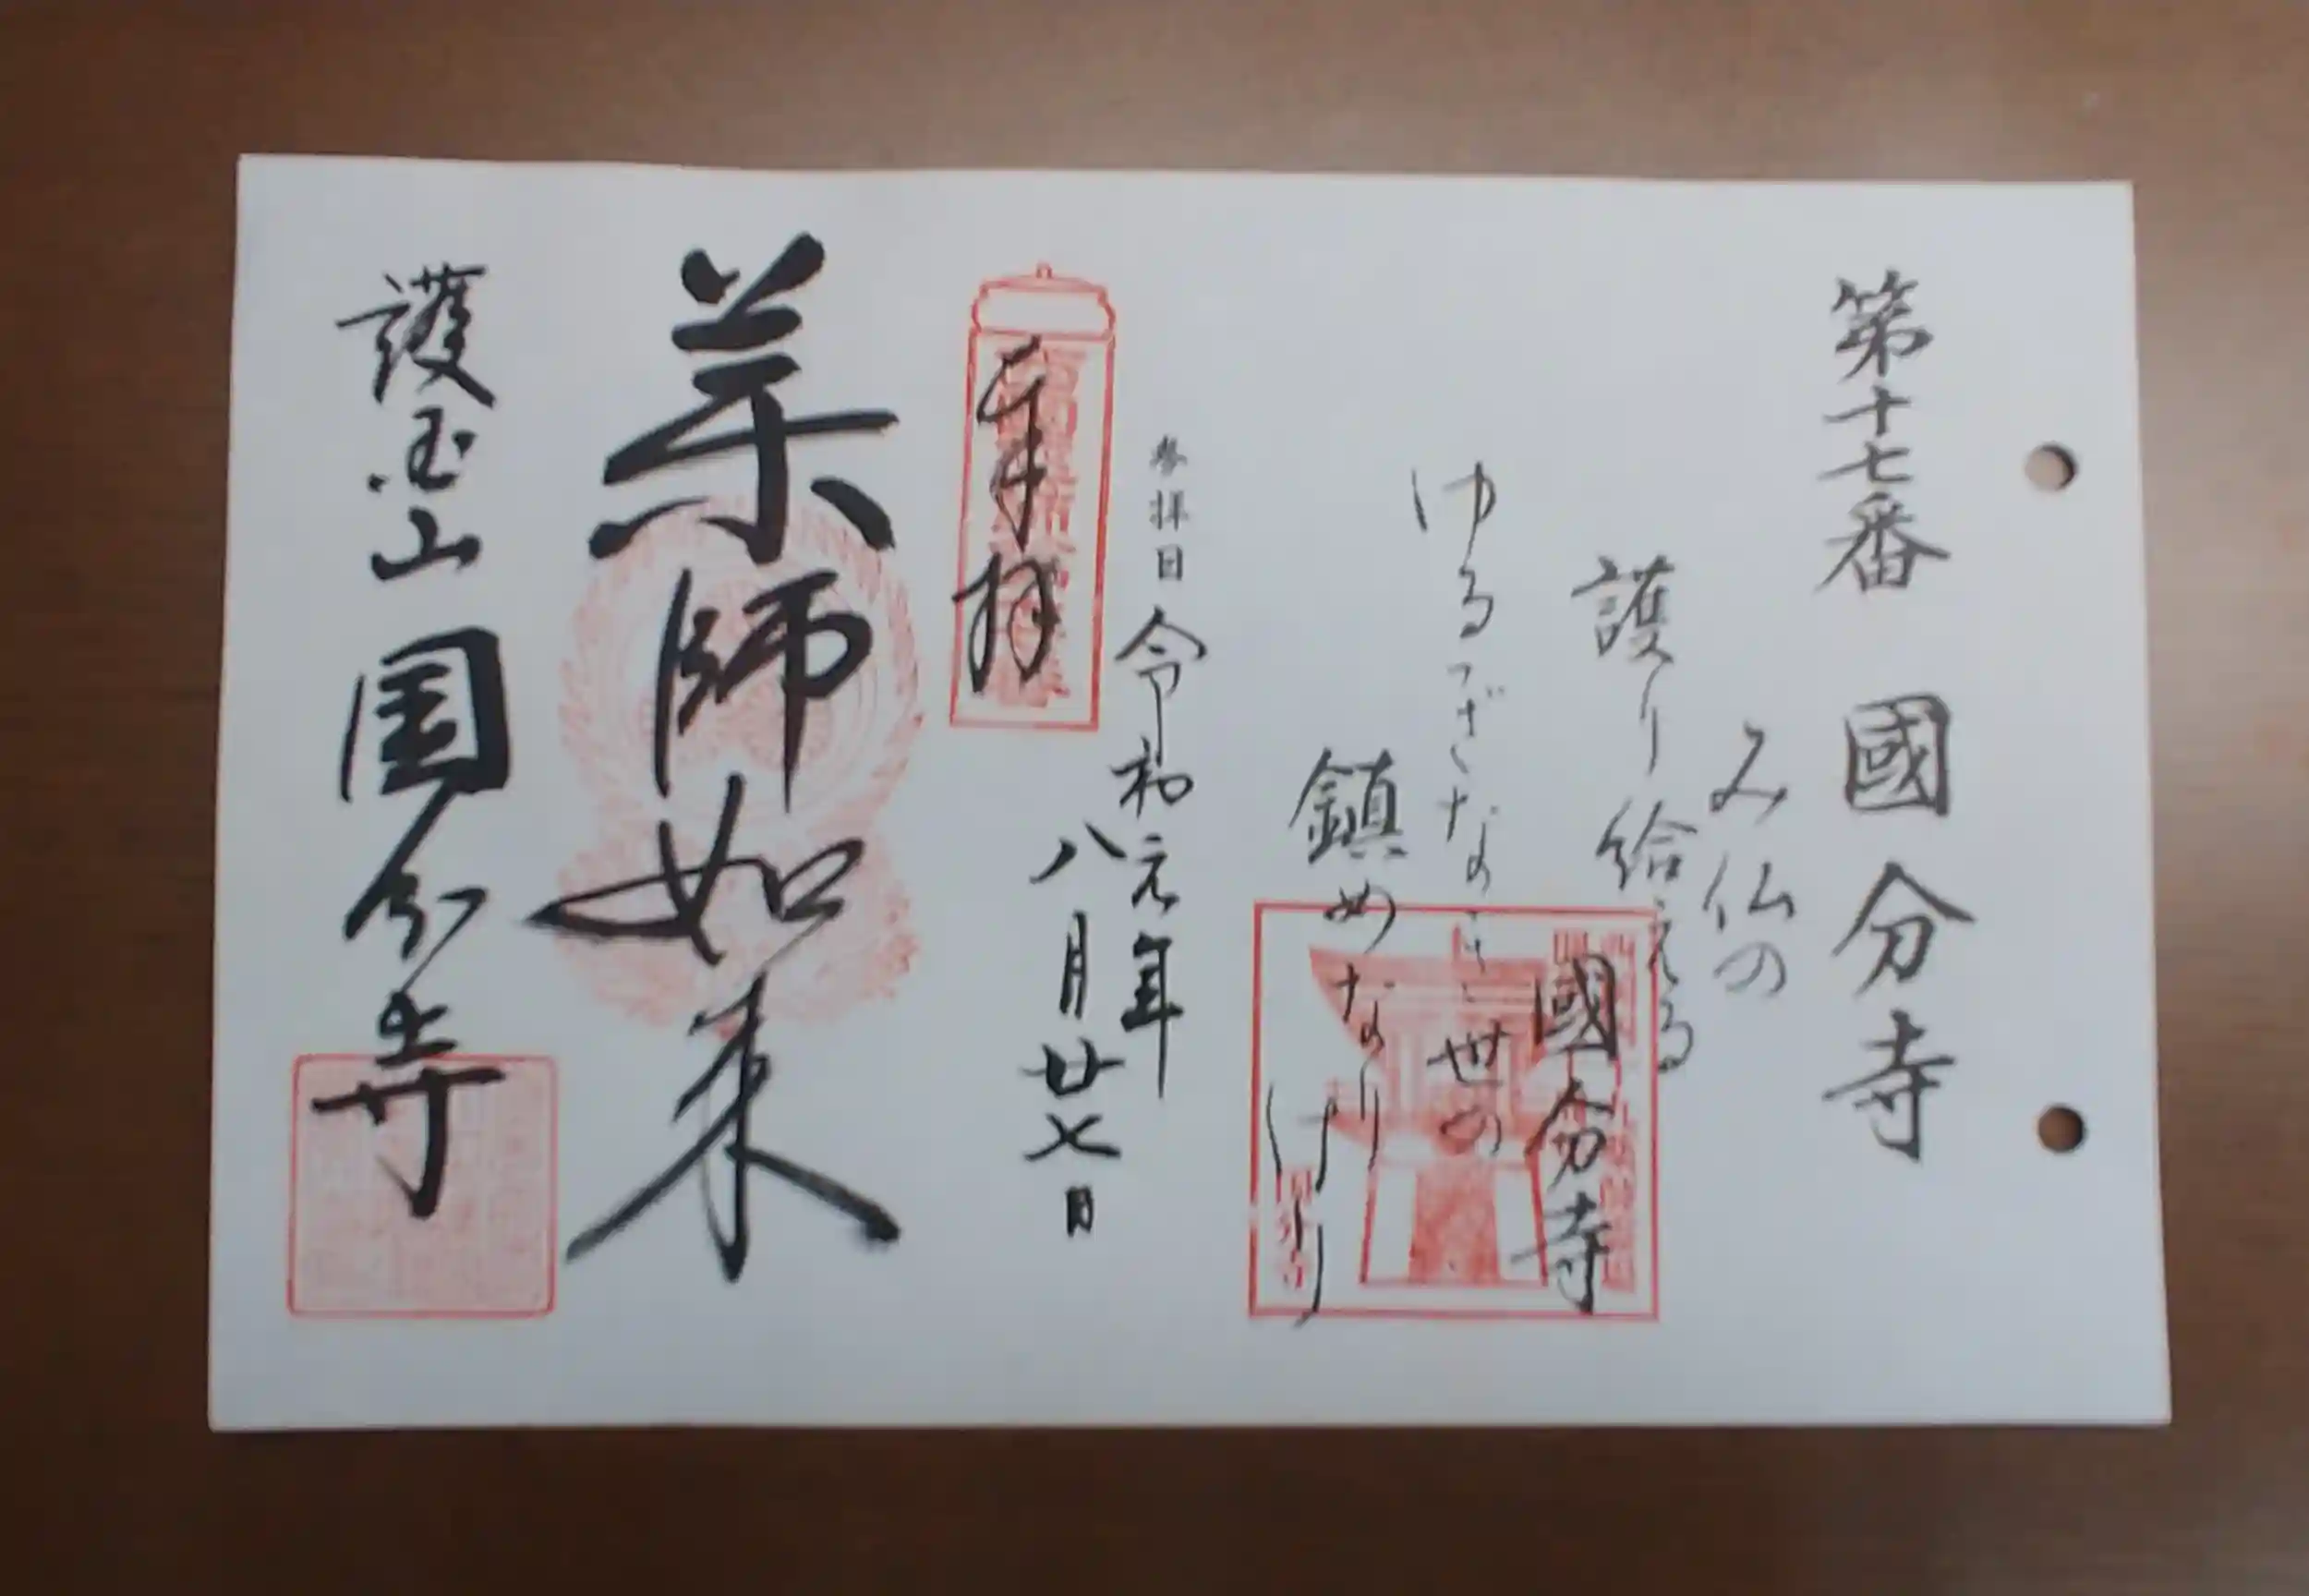 第十七番 國分寺
み仏の
護り給える
國分寺
ゆるぎなき世の
鎮めなり
けり
参拝日 令和元年
八月廿七日
奉拝
薬師如来
護国山 国分寺